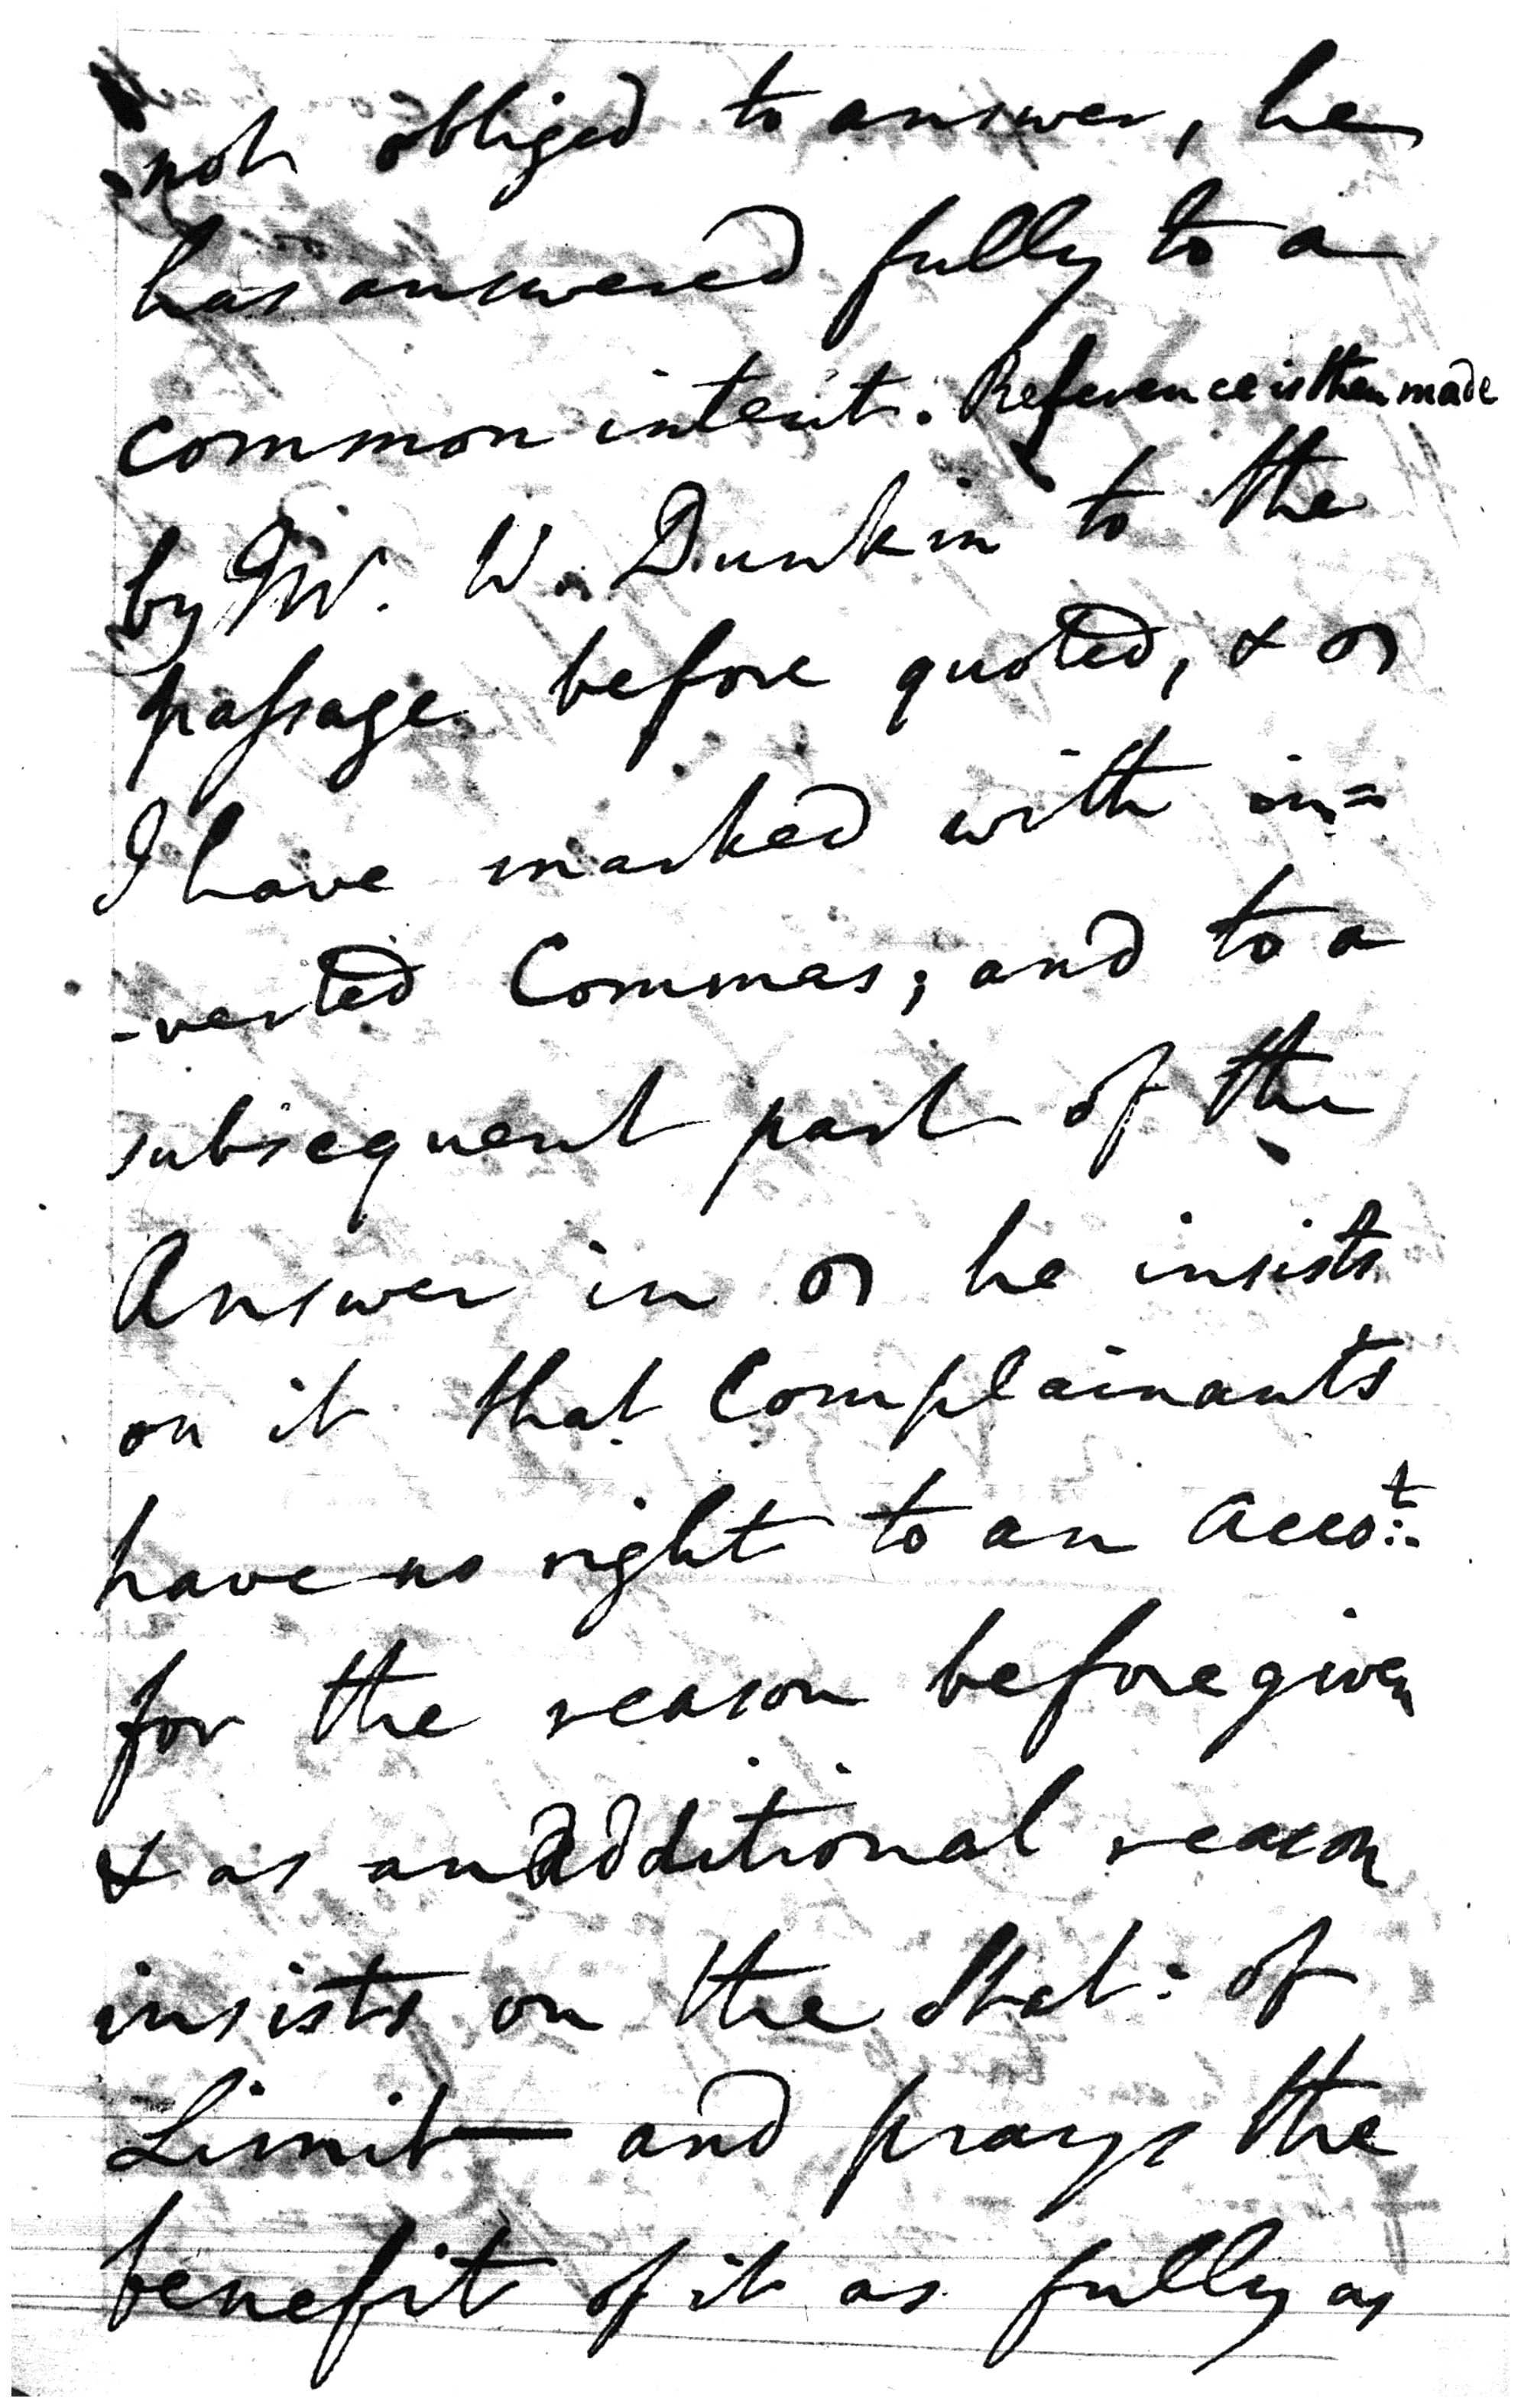 not obliged to answer, he
has answered fully to a
common intent. Reference is then made
by Mr. W. Dunkin to the
passage before quoted, & 
I have marked with in=
-verted Commas; and to a
subsequent part of the
Answer in he insists
on it that Complainants
have no right to an Acco:t
for the reason before given
& as an additional reason
insists on the Stat: of
Limit— and prays the
benefit of it as fully as